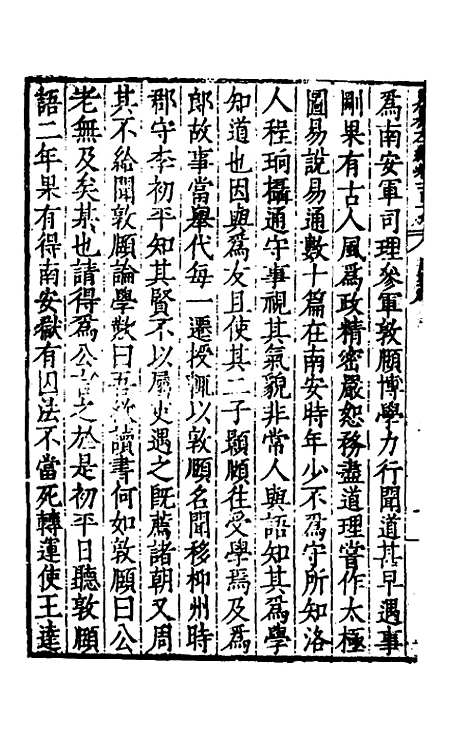 為南安軍司理參軍敦頤博學力行聞道甚早遇事
剛果有古人風為政精密嚴恕務盡道理嘗作太極
圖易說易通數十篇在南安時年少不為守所知洛
人程珦攝通守事視其氣貌非常人與語知其為學
知道也因與為友且使其二子顥頤往受學焉及為
郎故事當舉代每一遷授輒以敦頤名聞移郴州時
郡守李初平知其賢不以屬吏遇之既薦諸朝又周
其不給聞敦頤論學歎曰吾欲讀書何如敦頤曰公
老無及矣某也請得為公言之於是初平日聽敦頤
語二年果有得南安獄有囚法不當死轉運使王逵